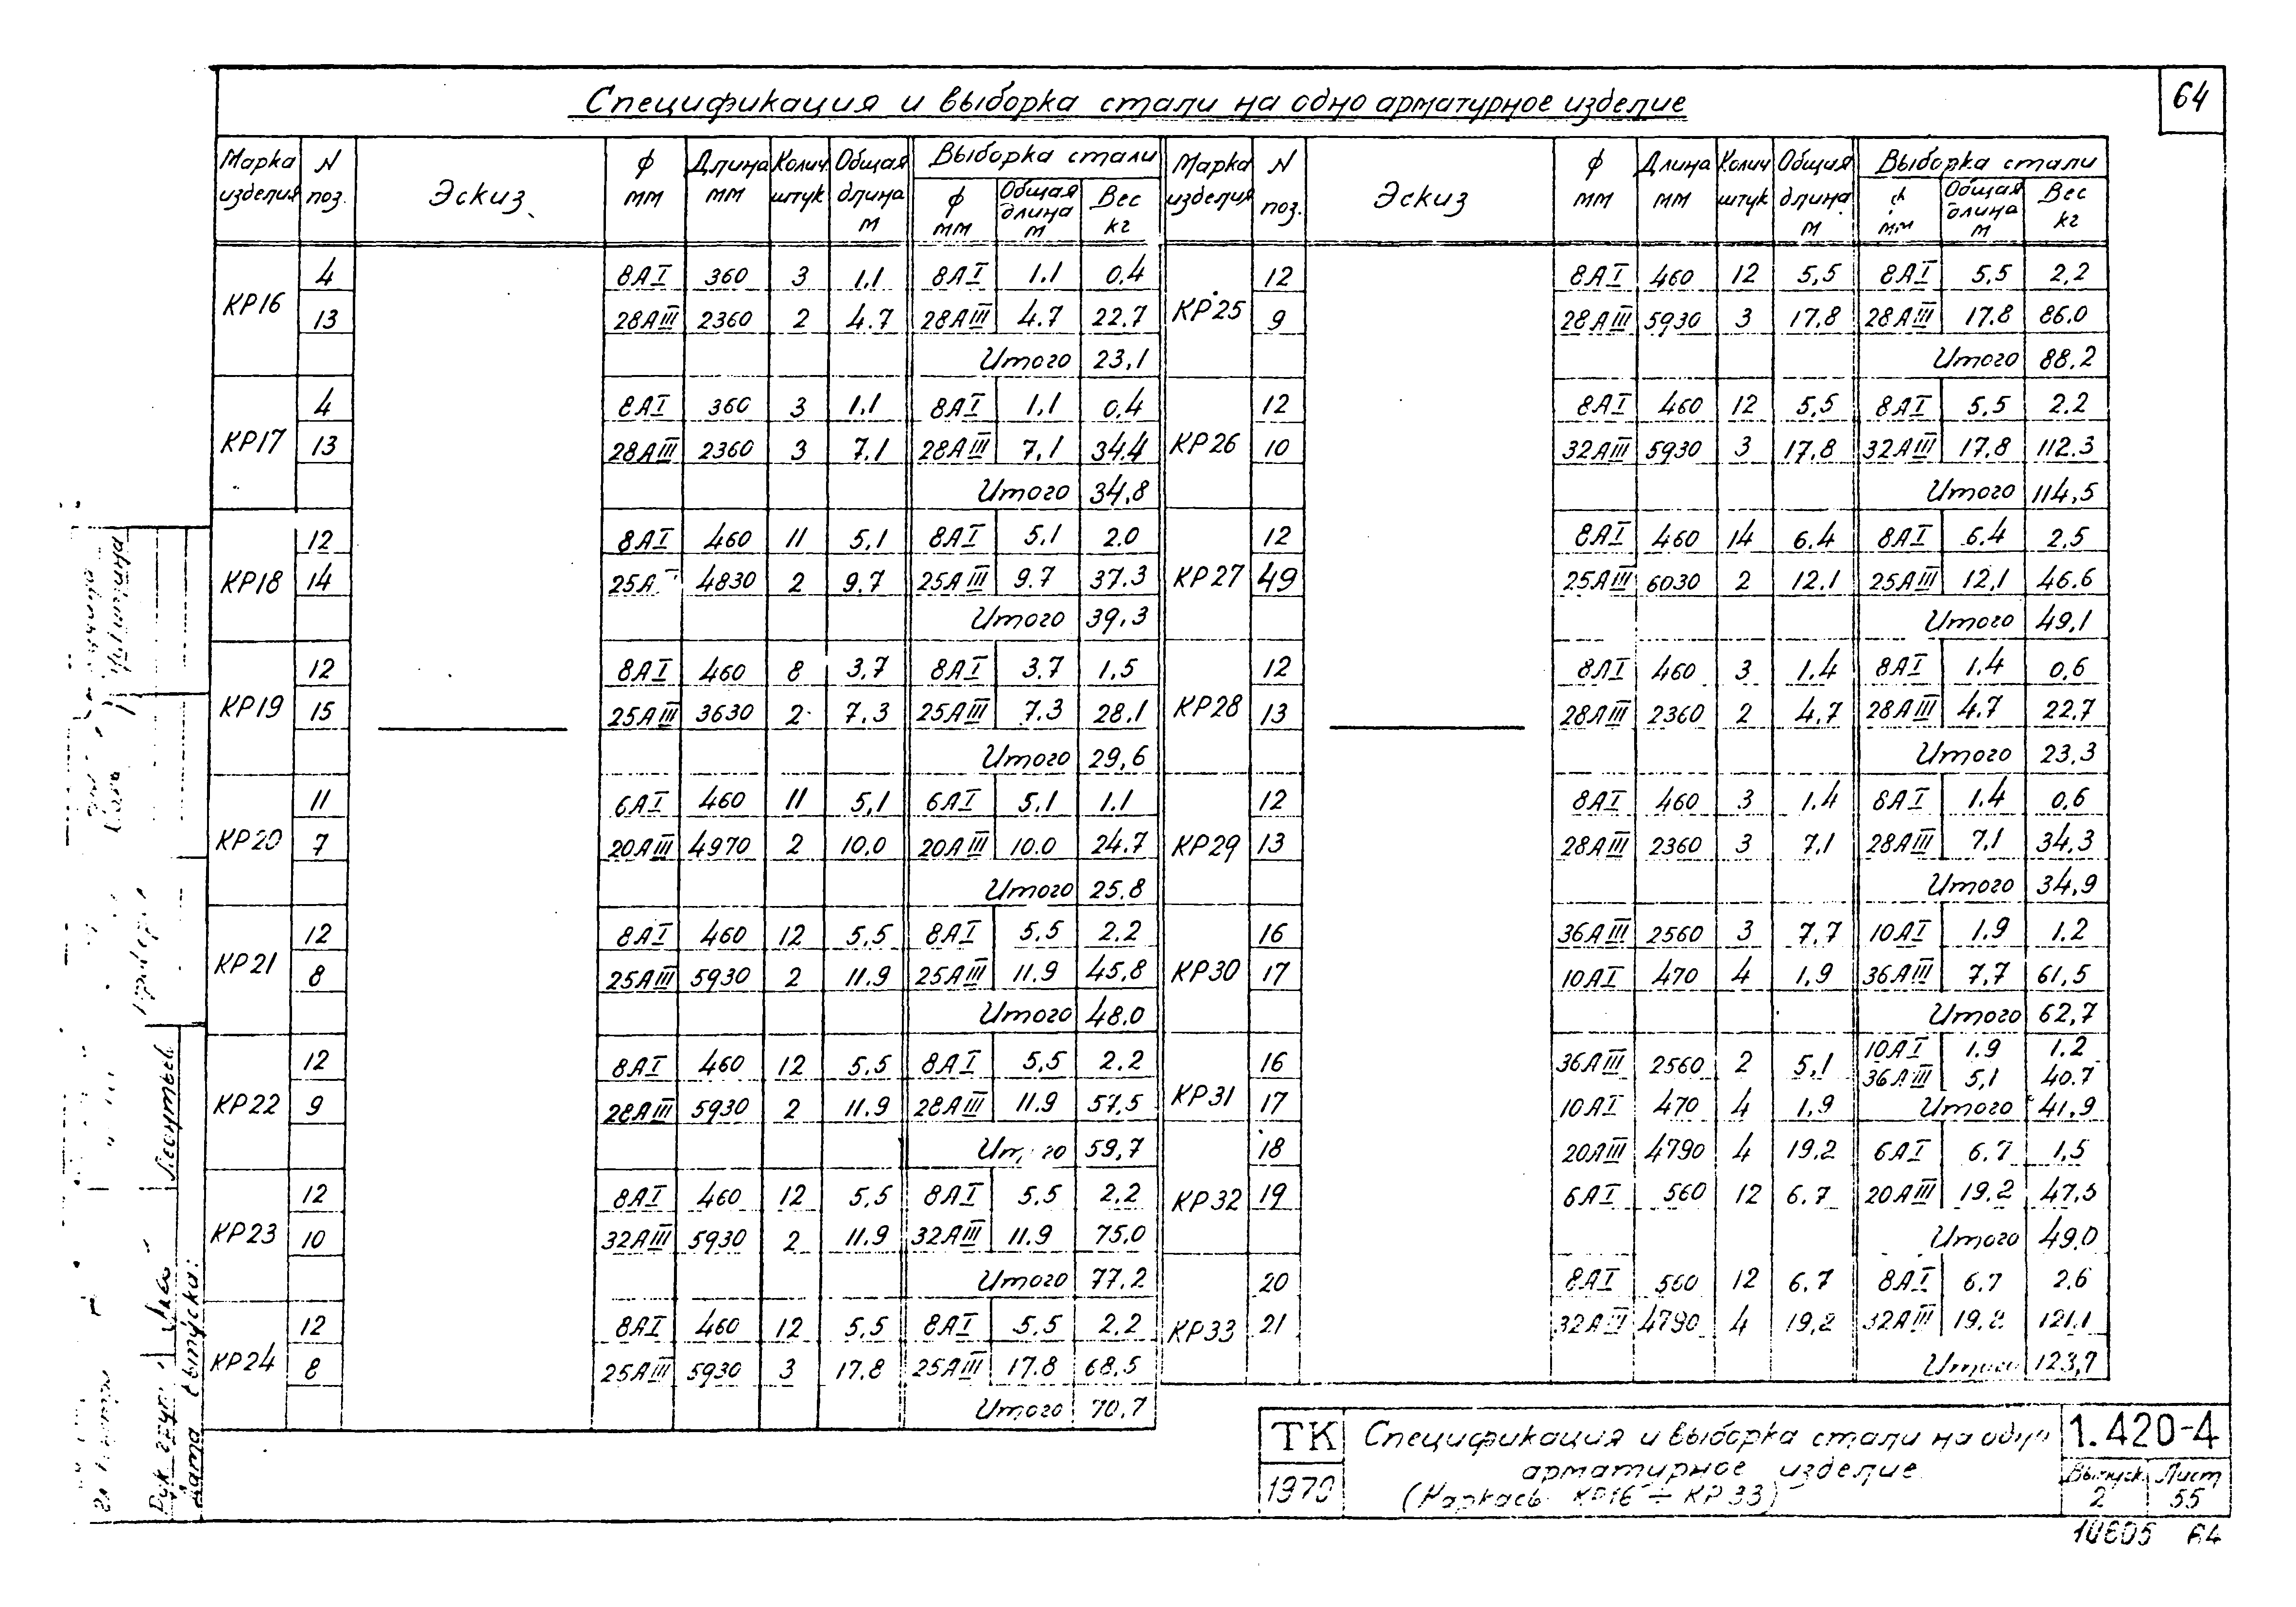 64
Спецификация и выборка стали на одно арматурное изделие
Марка изделия | N поз. | Эскиз | ф мм | Длина мм | Колич. штук | Общая длина м | Выборка стали: ф мм | Общая длина м | Вес кг
КР16 | 4 | 8АI | 360 | 3 | 1,1 | 8АI | 1.1 | 0,4
13 | 28АIII | 2360 | 2 | 4.7 | 28АIII | 4.7 | 22.7
Итого 23,1
КР17 | 4 | 8АI | 360 | 3 | 1,1 | 8АI | 1,1 | 0,4
13 | 28АIII | 2360 | 3 | 7,1 | 28АIII | 7,1 | 34.4
Итого 34,8
КР18 | 12 | 8АI | 460 | 11 | 5,1 | 8АI | 5,1 | 2.0
14 | 25А | 4830 | 2 | 9.7 | 25АIII | 9.7 | 37.3
Итого 39,3
КР19 | 12 | 8АI | 460 | 8 | 3,7 | 8АI | 3.7 | 1,5
15 | 25АIII | 3630 | 2 | 7,3 | 25АIII | 7.3 | 28.1
Итого 29,6
КР20 | 11 | 6АI | 460 | 11 | 5,1 | 6АI | 5,1 | 1.1
7 | 20АIII | 4970 | 2 | 10,0 | 20АIII | 10.0 | 24.7
Итого 25,8
КР21 | 12 | 8АI | 460 | 12 | 5,5 | 8АI | 5,5 | 2.2
8 | 25АIII | 5930 | 2 | 11.9 | 25АIII | 11.9 | 45,8
Итого 48,0
КР22 | 12 | 8АI | 460 | 12 | 5,5 | 8АI | 5,5 | 2.2
9 | 28АIII | 5930 | 2 | 11.9 | 28АIII | 11.9 | 57,5
Итого 59,7
КР23 | 12 | 8АI | 460 | 12 | 5,5 | 8АI | 5.5 | 2,2
10 | 32АIII | 5930 | 2 | 11.9 | 32АIII | 11.9 | 75,0
Итого 77.2
КР24 | 12 | 8АI | 460 | 12 | 5,5 | 8АI | 5.5 | 2.2
8 | 25АIII | 5930 | 3 | 17.8 | 25АIII | 17.8 | 68,5
Итого 70,7
Марка изделия | N поз. | Эскиз | ф мм | Длина мм | Колич штук | Общая длина м | Выборка стали: ф мм | Общая длина м | Вес кг
КР25 | 12 | 8АI | 460 | 12 | 5,5 | 8АI | 5,5 | 2,2
9 | 28АIII | 5930 | 3 | 17,8 | 28АIII | 17.8 | 86.0
Итого 88.2
КР26 | 12 | 8АI | 460 | 12 | 5,5 | 8АI | 5,5 | 2.2
10 | 32АIII | 5930 | 3 | 17,8 | 32АIII | 17,8 | 112.3
Итого 114,5
КР27 | 12 | 8АI | 460 | 14 | 6.4 | 8АI | 6.4 | 2,5
49 | 25АIII | 6030 | 2 | 12.1 | 25АIII | 12,1 | 46.6
Итого 49,1
КР28 | 12 | 8АI | 460 | 3 | 1.4 | 8АI | 1.4 | 0,6
13 | 28АIII | 2360 | 2 | 4,7 | 28АIII | 4.7 | 22,7
Итого 23,3
КР29 | 12 | 8АI | 460 | 3 | 1.4 | 8АI | 1.4 | 0,6
13 | 28АIII | 2360 | 3 | 7,1 | 28АIII | 7,1 | 34,3
Итого 34,9
КР30 | 16 | 36АIII | 2560 | 3 | 7,7 | 10АI | 1.9 | 1.2
17 | 10АI | 470 | 4 | 1,9 | 36АIII | 7,7 | 61,5
Итого 62,7
КР31 | 16 | 36АIII | 2560 | 2 | 5,1 | 10АI | 1.9 | 1.2
36АIII | 5,1 | 40.7
17 | 10АI | 470 | 4 | 1,9 | Итого 41,9
КР32 | 18 | 20АIII | 4790 | 4 | 19.2 | 6АI | 6.7 | 1,5
19 | 6АI | 560 | 12 | 6.7 | 20АIII | 19.2 | 47,5
Итого 49,0
КР33 | 20 | 8АI | 560 | 12 | 6.7 | 8АI | 6.7 | 2.6
21 | 4790 | 4 | 19,2 | 32АIII | 19.2 | 121,1
Итого 123,7
ТК
1970
Спецификация и выборка стали на одно
арматурное изделие
(Каркасы КР16 ÷ КР33)
1.420-4
Выпуск 2
Лист 55
10605 64
Дата выпуска: